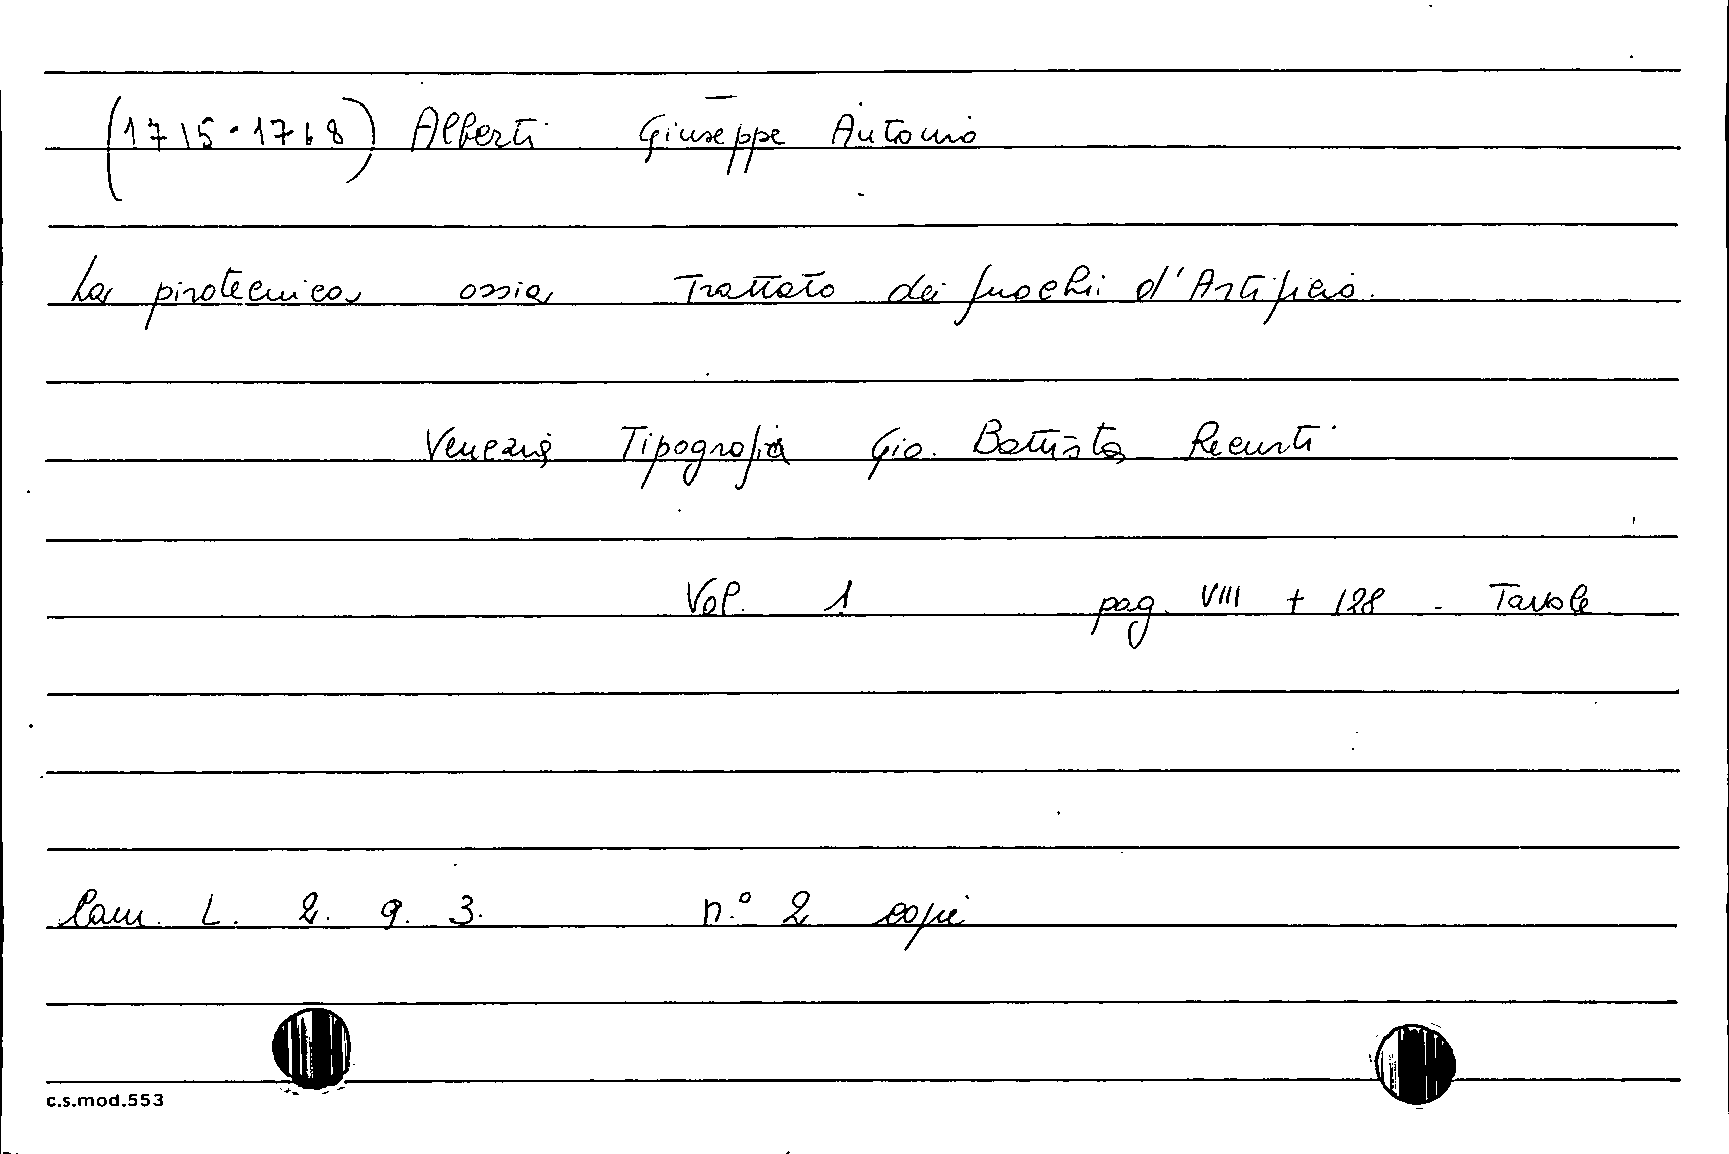 (1715-1768) Alberti Giuseppe Antonio
La pirotecnica ossia Trattato dei fuochi d'Artificio.
Venezia Tipografia Gio. Battista Recurti
Vol. 1 pag. VIII + 128 - Tavole
Cam. L. 2. 9. 3. n.° 2 copie
c.s.mod.553